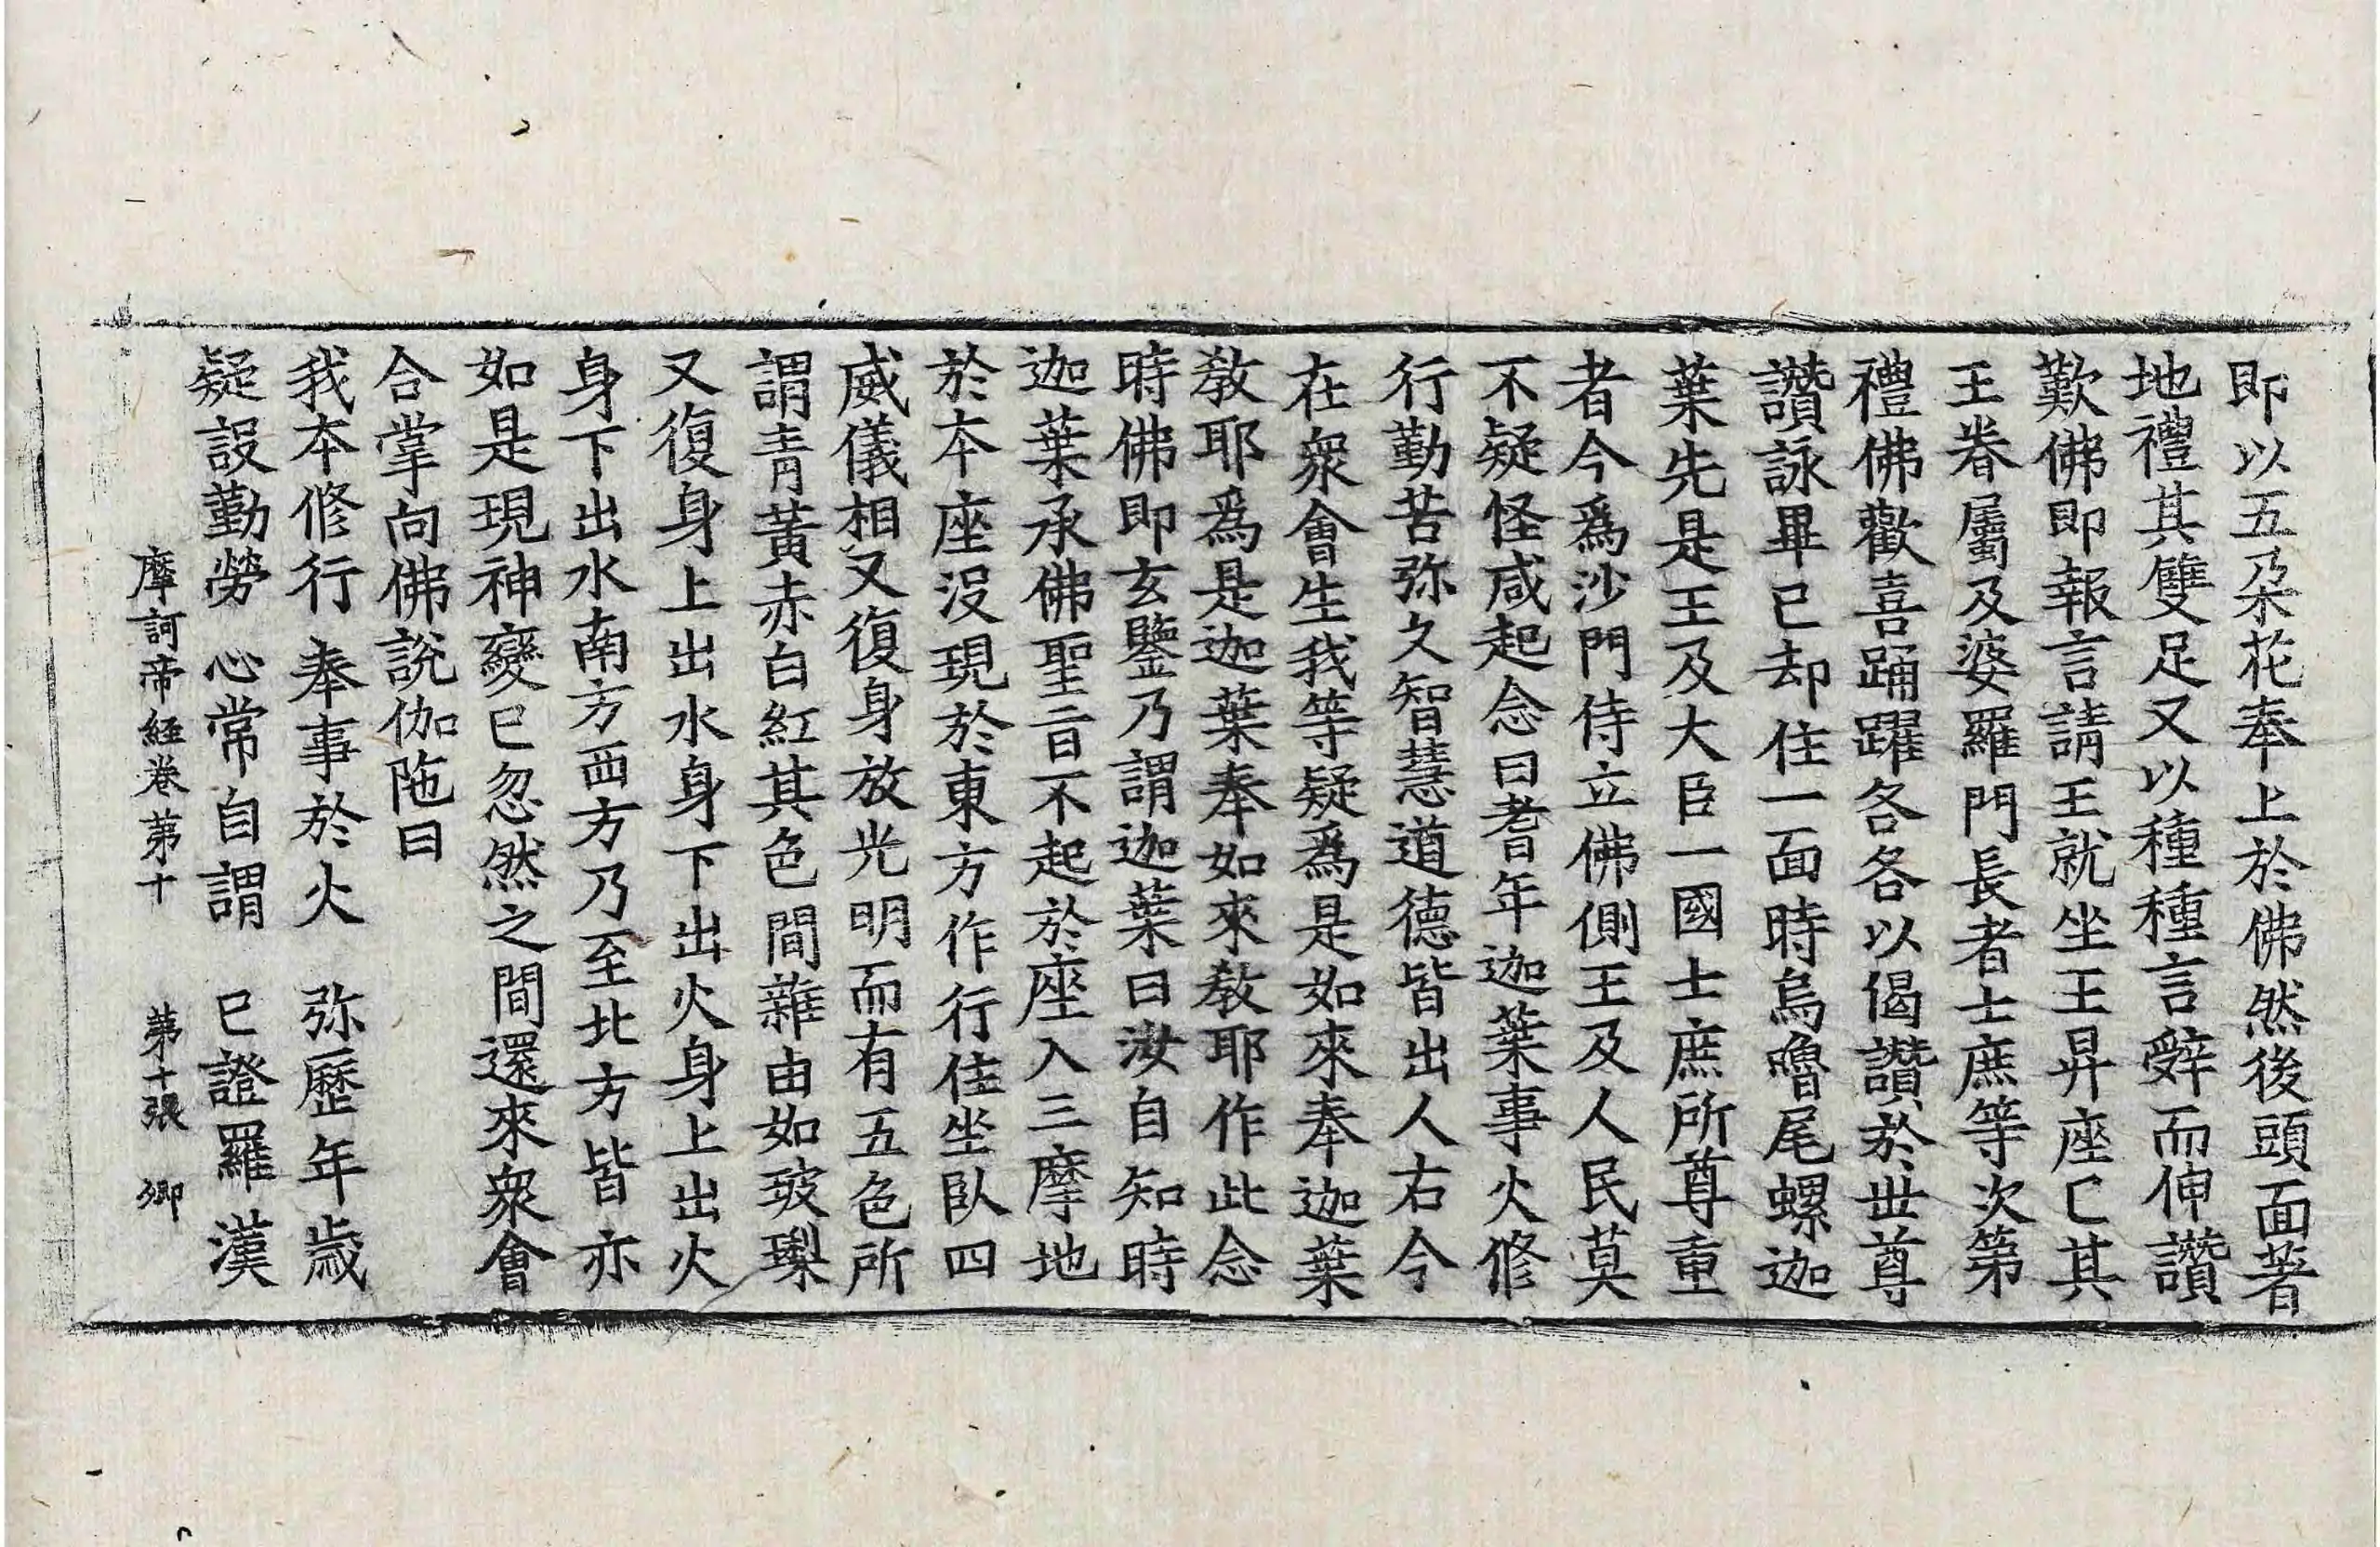 即以五朵花奉上於佛然後頭面著
地禮其雙足又以種種言辝而伸讚
歎佛即報言請王就坐王昇座已其
王眷屬及婆羅門長者士庶等次第
禮佛歡喜踊躍各各以偈讚於世尊
讚詠畢已却住一面時烏嚕尾螺迦
葉先是王及大臣一國士庶所尊重
者今爲沙門侍立佛側王及人民莫
不疑怪咸起念曰耆年迦葉事火修
行勤苦弥久智慧道德皆出人右今
在衆會生我等疑爲是如來奉迦葉
敎耶爲是迦葉奉如來敎耶作此念
時佛即玄鑒乃謂迦葉曰汝自知時
迦葉承佛聖旨不起於座入三摩地
於本座沒現於東方作行住坐臥四
威儀相又復身放光明而有五色所
謂青黃赤白紅其色間雜由如玻瓈
又復身上出水身下出火身上出火
身下出水南方西方乃至北方皆亦
如是現神變已忽然之間還來衆會
合掌向佛說伽陁曰
我本修行　奉事於火　弥歷年歲
疑設勤勞　心常自謂　已證羅漢
摩訶帝経卷第十　第十張　卿